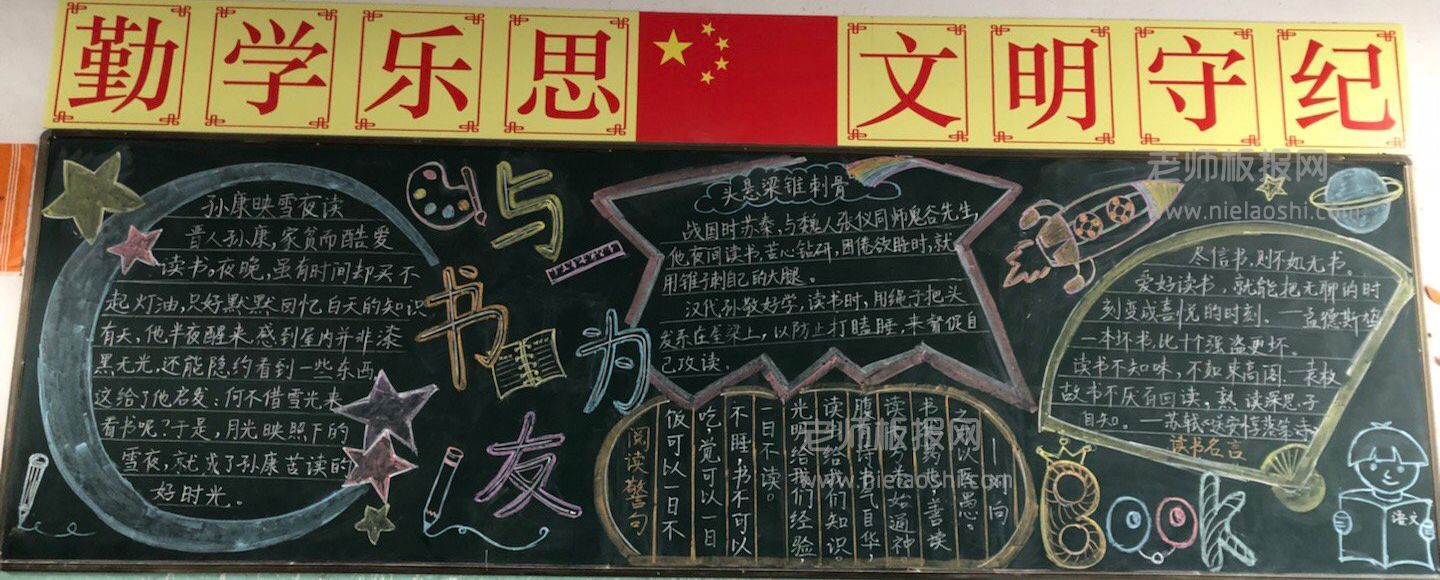 勤学乐思 文明守纪
老师板报网
www.nielaoshi.com
孙康映雪夜读
晋人孙康，家贫而酷爱
读书。夜晚，虽有时间却买不
起灯油，只好默默回忆白天的知识
有天，他半夜醒来，感到屋内并非漆
黑无光，还能隐约看到一些东西
这给了他启发：何不借雪光来
看书呢？于是，月光映照下的
雪夜，就成了孙康苦读的
好时光。
与
书
为
友
头悬梁锥刺骨
战国时苏秦，与魏人张仪同师鬼谷先生，
他夜间读书，苦心钻研，困倦欲睡时，就
用锥子刺自己的大腿。
汉代孙敬好学，读书时，用绳子把头
发系在屋梁上，以防止打瞌睡，来督促自
己攻读。
尽信书，则不如无书。
爱好读书，就能把无聊的时
刻变成喜悦的时刻。—孟德斯鸠
一本坏书，比十个强盗更坏。
读书不知味，不如束高阁。—袁枚
故书不厌百回读，熟读深思子
自知。—苏轼《送安惇
读书名言
——刘向
之以医愚。
书犹药也，善读
读书
腹有诗书气自华，
读书给我们知识。
光明给我们经验，
一日不读。
不睡，书不可以
吃，觉可以一日
饭可以一日不
阅读警句
老师板报网
www.nielaoshi.com
BOOK
语文